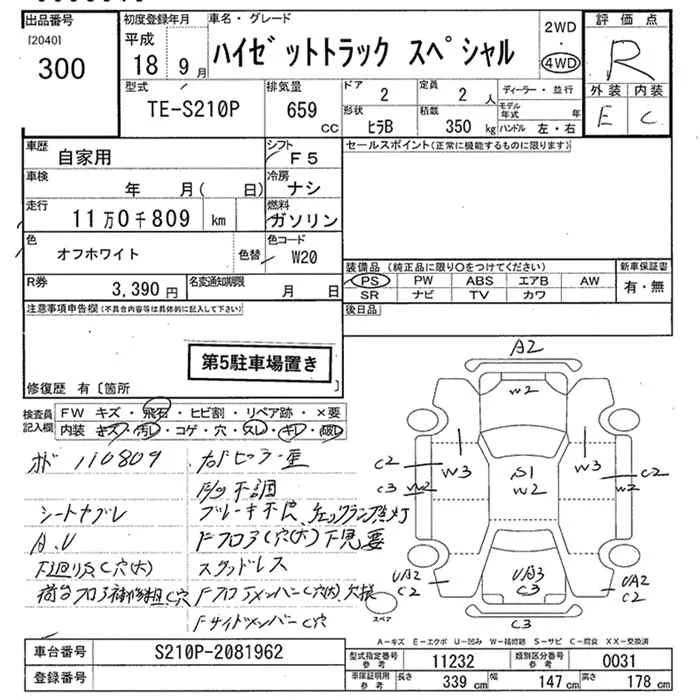 出品番号
[2040]
300
初度登録年月
平成
18 9月
車名・グレード
ハイゼットトラック スペシャル
2WD
・
4WD
評価点
R
外装 内装
E C
型式
TE-S210P
排気量
659
cc
ドア
2
定員
2人
形状
ヒラB
積載
350 kg
ディーラー・並行
モデル年式 年
ハンドル 左・右
車歴
自家用
シフト
F5
車検
年 月( 日)
冷房
ナシ
走行
11万0千809 km
燃料
ガソリン
色
オフホワイト
色替
色コード
W20
R券
3,390円
名変通知期限
月 日
セールスポイント(正常に機能するものに限ります)
装備品(純正品に限り○をつけてください)
新車保証書
PS PW ABS エアB AW
SR ナビ TV カワ
有・無
後日品
注意事項申告欄(不具合内容等は具体的に記入して下さい)
第5駐車場置き
修復歴 有〔箇所 〕
検査員
記入欄
FW キズ・飛石・ヒビ割・リペア跡・×要
内装 キズ・汚レ・コゲ・穴・スレ・キレ・破レ
110809
不調
シートナブレ
ブレーキ不良、チェックランプ点灯
A.U
FフロアC穴(大)下見要
下廻りSC穴(大)
スタッドレス
荷台フロア補修粗C穴
FフロアメンバーC穴(大)、欠損
FサイドメンバーC穴
A2
W2
C2
C3
W2
W3
S1
W2
W3
C2
W2
UA2
C2
UA3
C3
UA2
C2
C3
スペア
A-キズ E-エクボ U-凹み W-補修跡 S-サビ C-腐食 XX-交換済
車台番号
S210P-2081962
登録番号
型式指定番号
参考
11232
類別区分番号
参考
0031
車庫証明用
参考
長さ
339 cm
幅
147 cm
高さ
178 cm